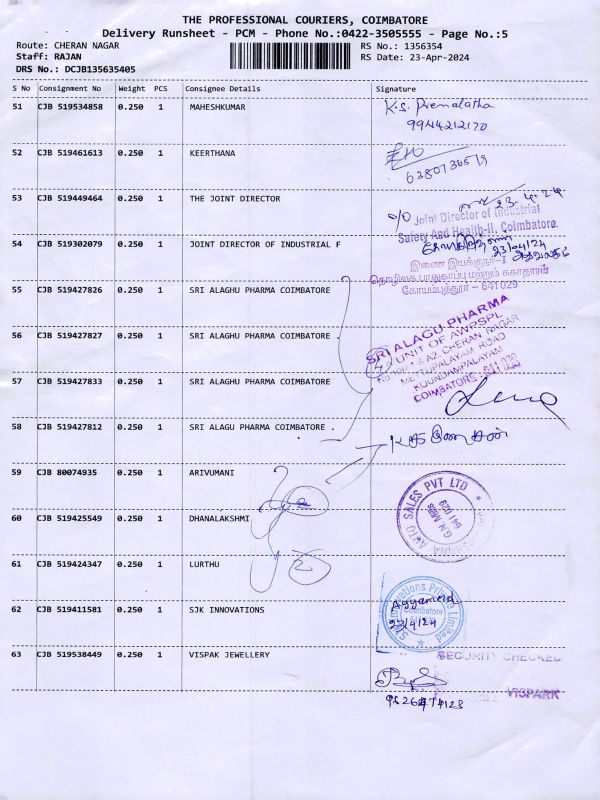 THE PROFESSIONAL COURIERS, COIMBATORE
Delivery Runsheet - PCM - Phone No.:0422-3505555 - Page No.:5
Route: CHERAN NAGAR RS No.: 1356354
Staff: RAJAN RS Date: 23-Apr-2024
DRS No.: DCJB135635405
S No Consignment No Weight PCS Consignee Details Signature
51 CJB 519534858 0.250 1 MAHESHKUMAR K.S. Premalatha
9944212170
52 CJB 519461613 0.250 1 KEERTHANA
6380736519
53 CJB 519449464 0.250 1 THE JOINT DIRECTOR 23.4.24
O/O Joint Director of Industrial
Safety And Health-II, Coimbatore.
54 CJB 519302079 0.250 1 JOINT DIRECTOR OF INDUSTRIAL F 23/4/24
இணை இயக்குநர்-I
தொழிலக பாதுகாப்பு மற்றும் சுகாதாரம்
கோயம்புத்தூர் - 641 029
55 CJB 519427826 0.250 1 SRI ALAGHU PHARMA COIMBATORE
56 CJB 519427827 0.250 1 SRI ALAGHU PHARMA COIMBATORE .
SRI ALAGU PHARMA
UNIT OF AWPSPL
1 & A2, CHERAN NAGAR
METTUPALAYAM ROAD
KOUNDAMPALAYAM
COIMBATORE - 641 030
57 CJB 519427833 0.250 1 SRI ALAGHU PHARMA COIMBATORE
58 CJB 519427812 0.250 1 SRI ALAGU PHARMA COIMBATORE .
59 CJB 80074935 0.250 1 ARIVUMANI
AUTO SALES PVT LTD
G.N. Mills
641 029
60 CJB 519425549 0.250 1 DHANALAKSHMI
61 CJB 519424347 0.250 1 LURTHU
62 CJB 519411581 0.250 1 SJK INNOVATIONS
SJK Innovations Private Limited
Coimbatore
23/4/24
63 CJB 519538449 0.250 1 VISPAK JEWELLERY
SECURITY CHECKED
VISPARK